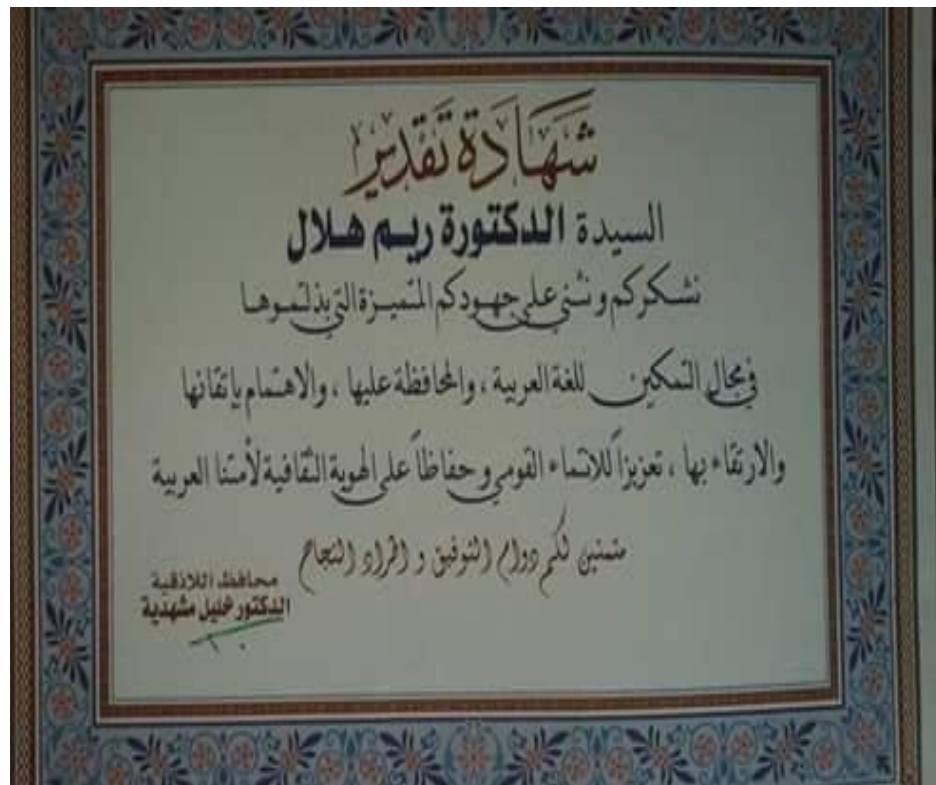 شهادة تقدير
السيدة الدكتورة ريم هلال
نشكركم ونثني على جهودكم المتميزة التي بذلتموها
في مجال التمكين للغة العربية ، والمحافظة عليها ، والاهتمام بإتقانها
والارتقاء بها ، تعزيزاً للانتماء القومي وحفاظاً على الهوية الثقافية لأمتنا العربية
متمنين لكم دوام التوفيق و اطراد النجاح
محافظ اللاذقية
الدكتور خليل مشهدية